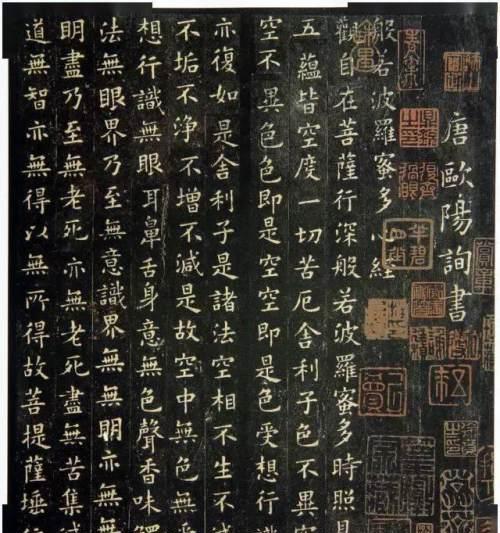 唐歐陽詢書
般若波羅蜜多心經
觀自在菩薩行深般若波羅蜜多時照見
五蘊皆空度一切苦厄舍利子色不異空
空不異色色即是空空即是色受想行識
亦復如是舍利子是諸法空相不生不滅
不垢不淨不增不減是故空中無色無受
想行識無眼耳鼻舌身意無色聲香味觸
法無眼界乃至無意識界無無明亦無無
明盡乃至無老死亦無老死盡無苦集滅
道無智亦無得以無所得故菩提薩埵